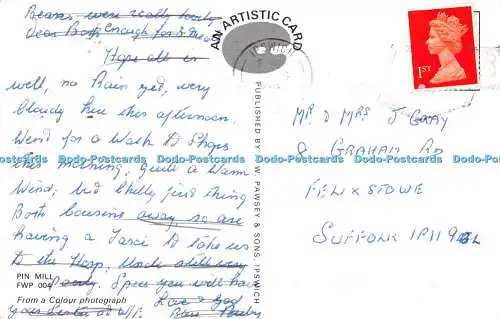 Beans were really lovely
Dear Both Enough for 3 meals
Hope all is
well, no Rain yet, very
Cloudy here this afternoon.
Went for a Walk to Shops
this morning, quite a Warm
Wind, but Chilly first thing
Both cousins away so are
having a Taxi to take us
to the Hosp,
will have
Love & God
PIN MILL
FWP 004
From a Colour photograph
AN ARTISTIC CARD
PUBLISHED BY W. PAWSEY & SONS, IPSWICH
IPSWICH
1ST
MR & MRS J GRAY
8 GRAHAM RD
FELIXSTOWE
SUFFOLK IP11 9
Dodo-Postcards Dodo-Postcards Dodo-Postcards Dodo-Postcards Dodo-Postcards